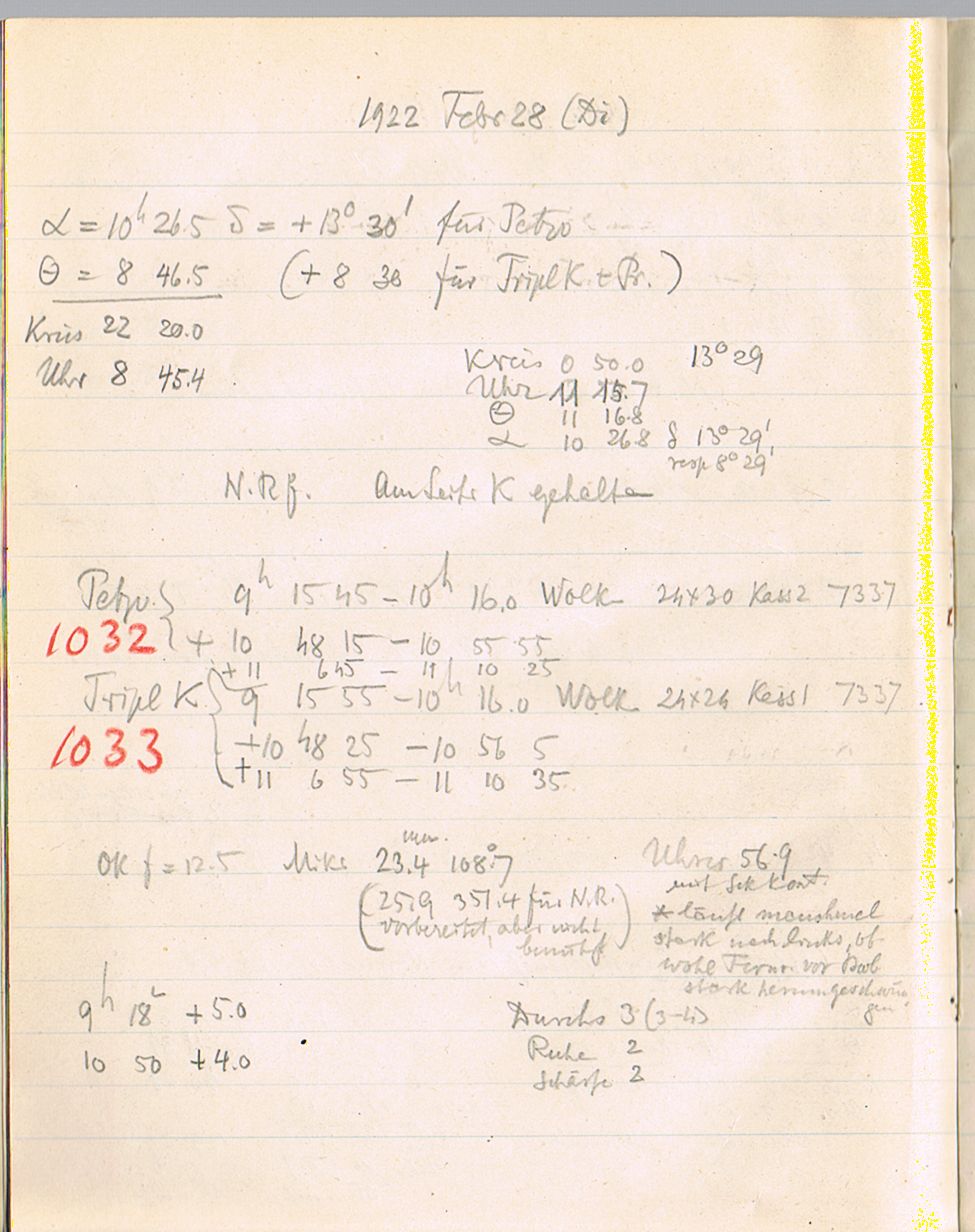 1922 Febr 28 (Di)
α = 10h 26.5 δ = +13° 30' für Petzv
Θ = 8 46.5 (+ 8 30 für Tripl K. + Pr.)
Kreis 22 20.0
Uhr 8 45.4
Kreis 0 50.0 13° 29
Uhr 11 15.7
Θ 11 16.8
α 10 26.8 δ 13° 29'
resp 8° 29'
N.R f. Am Leitr K gehalten
Petzv. 9h 15 45 – 10h 16.0 Wolk 24×30 Kass 2 7337
1032 + 10 48 15 – 10 55 55
+ 11 6 45 – 11 10 25
Tripl K. 9 15 55 – 10h 16.0 Wolk 24×24 Kass 1 7337
1033 + 10 48 25 – 10 56 5
+ 11 6 55 – 11 10 35
OK f = 12.5 Mikr. 23.4 108°.7
(25.9 351.4 für N.R.
vorbereitet, aber nicht
benutzt)
Uhrw 56.9
mit Sek Kont.
* läuft manchmal
stark nach links, ob-
wohl Fernr. vor Beob
stark herumgeschwun-
gen
9h 18 +5.0
10 50 +4.0
Durchs 3 (3–4)
Ruhe 2
Schärfe 2